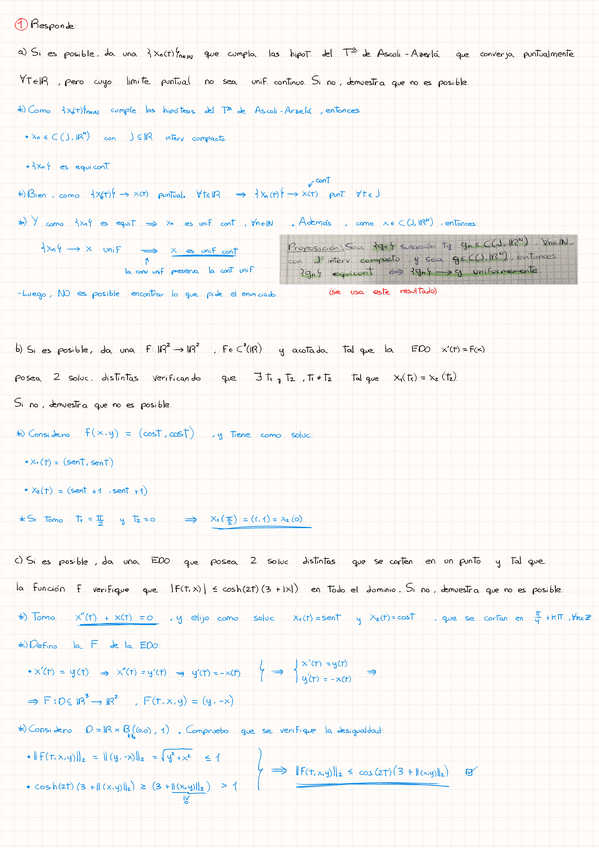 ① Responde:
a) Si es posible, da una {xn(t)}n∈IN que cumpla las hipót. del Tª de Ascoli-Azerlá que converja puntualmente
∀t∈IR, pero cuyo límite puntual no sea unif. continuo. Si no, demuestra que no es posible.
*) Como {xn(t)}n∈IN cumple las hipótesis del Tª de Ascoli-Arzelá, entonces
• xn ∈ C(J, IRᴺ) con J⊆IR interv compacto
• {xn} es equicont
*) Bien, como {xn(t)} → x(t) puntual. ∀t∈IR ⟹ {xn(t)} → x(t) punt ∀t∈J
cont
*) Y como {xn} es equit ⟹ xn es unif cont, ∀n∈IN. Además, como x∈C(J, IRᴺ), entonces:
{xn} → x unif ⟹ x es unif cont
la conv unif preserva la cont unif
Proposición\ Sea {gn} sucesión tq gn∈C(J, IRᴺ), ∀n∈IN
con J interv compacto y sea g∈C(J, IRᴺ), entonces
{gn} equicont ⟺ {gn} → g uniformemente
(se usa este resultado)
-Luego, NO es posible encontrar lo que pide el enunciado.
b) Si es posible, da una F: IR² → IR², F∈C¹(IR) y acotada tal que la EDO x'(t) = F(x)
posea 2 soluc. distintas verificando que ∃ t₁, t₂, t₁ ≠ t₂ tal que x₁(t₁) = x₂(t₂)
Si no, demuestra que no es posible.
*) Considero f(x,y) = (cost, cost), y tiene como soluc:
• x₁(t) = (sent, sent)
• x₂(t) = (sent +1, sent +1)
* Si tomo t₁ = π/2 y t₂ = 0 ⟹ x₁(π/2) = (1,1) = x₂(0)
c) Si es posible, da una EDO que posea 2 soluc distintas que se corten en un punto y tal que
la función f verifique que |F(t,x)| ≤ cosh(2t)(3+|x|) en todo el dominio. Si no, demuestra que no es posible.
*) Tomo x''(t) + x(t) = 0, y elijo como soluc x₁(t) = sent y x₂(t) = cost, que se cortan en π/4 + kπ, ∀k∈ℤ
*) Defino la F de la EDO:
• x'(t) = y(t) ⟹ x''(t) = y'(t) ⟹ y'(t) = -x(t) } ⟹ { x'(t) = y(t)
y'(t) = -x(t) ⟹
⟹ F: D⊆IR³ → IR², F(t,x,y) = (y, -x)
*) Considero D = IR × B‖·‖₂((0,0), 1). Compruebo que se verifique la desigualdad:
• ‖F(t,x,y)‖₂ = ‖(y,-x)‖₂ = √y²+x² ≤ 1
• cosh(2t)(3+‖(x,y)‖₂) ≥ (3+‖(x,y)‖₂) > 1
≥ 0
} ⟹ ‖F(t,x,y)‖₂ ≤ cos(2t)(3+‖(x,y)‖₂) ☑